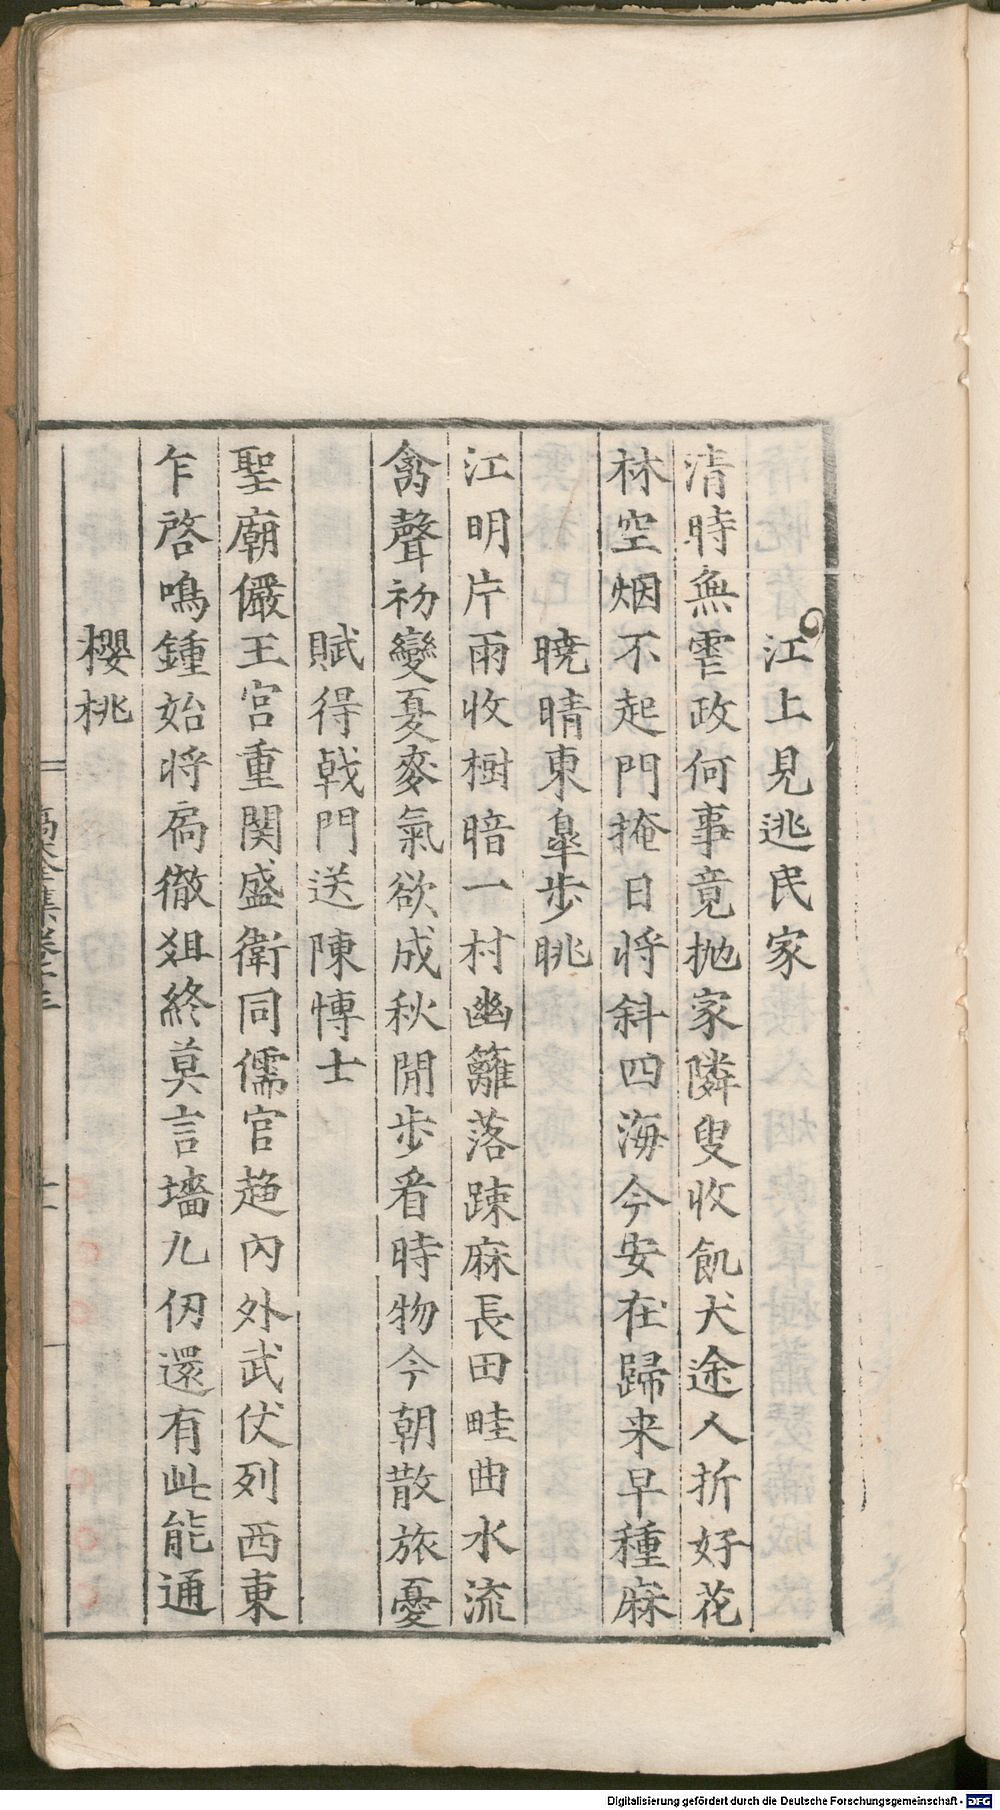 江上見逃民家
清時無虐政何事竟抛家隣叟收飢犬途人折好花
林空烟不起門掩日将斜四海今安在歸来早種麻
暁晴東臯步眺
江明片雨收樹暗一村幽籬落踈麻長田畦曲水流
禽聲初變夏麥氣欲成秋閒步看時物今朝散旅憂
賦得戟門送陳博士
聖廟儼王宮重関盛衛同儒官趍內外武仗列西東
乍啓鳴鍾始将扃徹俎終莫言墻九仞還有此能通
櫻桃
高太全集卷十三
十一
Digitalisierung gefördert durch die Deutsche Forschungsgemeinschaft - DFG